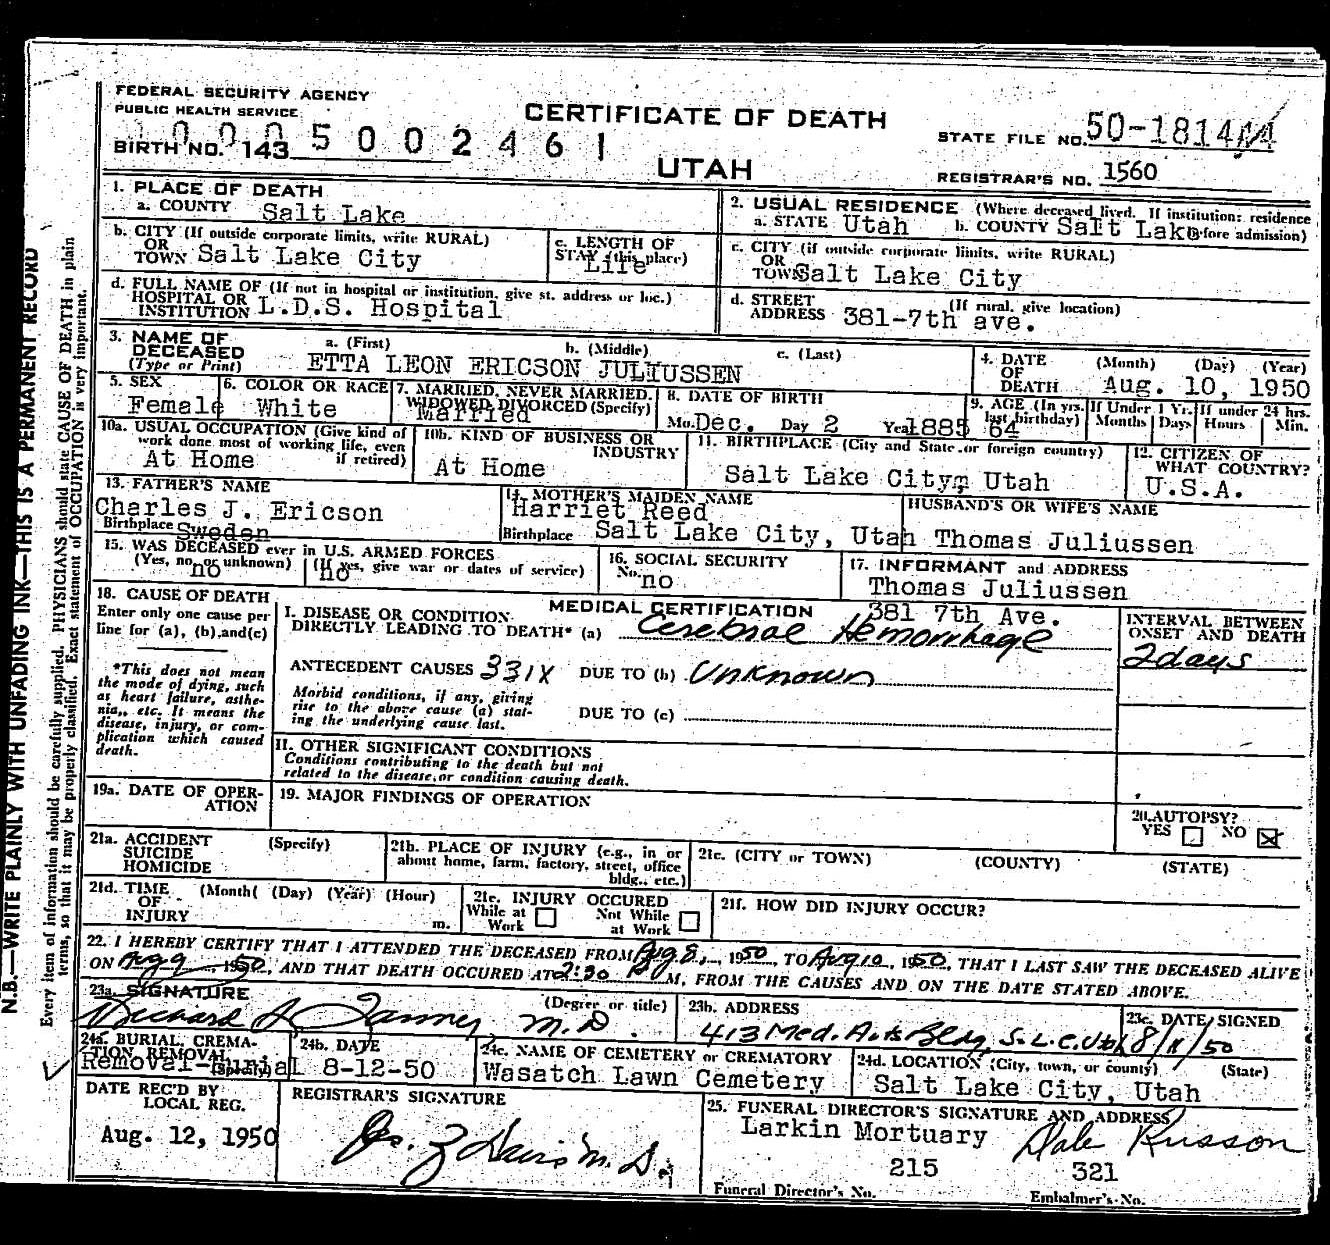 FEDERAL SECURITY AGENCY
PUBLIC HEALTH SERVICE
CERTIFICATE OF DEATH
UTAH
BIRTH NO. 143 5 0 0 2 4 6 1
STATE FILE NO. 50-1814
REGISTRAR'S NO. 1560
N.B.—WRITE PLAINLY WITH UNFADING INK—THIS IS A PERMANENT RECORD
Every item of information should be carefully supplied. PHYSICIANS should state CAUSE OF DEATH in plain
terms, so that it may be properly classified. Exact statement of OCCUPATION is very important.
1. PLACE OF DEATH
a. COUNTY Salt Lake
b. CITY (If outside corporate limits, write RURAL)
OR
TOWN Salt Lake City
c. LENGTH OF
STAY (this place)
Life
d. FULL NAME OF (If not in hospital or institution, give st. address or loc.)
HOSPITAL OR
INSTITUTION L.D.S. Hospital
2. USUAL RESIDENCE (Where deceased lived. If institution: residence
a. STATE Utah b. COUNTY Salt Lake before admission)
c. CITY (if outside corporate limits, write RURAL)
OR
TOWN Salt Lake City
d. STREET (If rural, give location)
ADDRESS 381-7th ave.
3. NAME OF
DECEASED
(Type or Print)
a. (First) b. (Middle) c. (Last)
ETTA LEON ERICSON JULIUSSEN
4. DATE
OF
DEATH
(Month) (Day) (Year)
Aug. 10, 1950
5. SEX
Female
6. COLOR OR RACE
White
7. MARRIED, NEVER MARRIED,
WIDOWED, DIVORCED (Specify)
Married
8. DATE OF BIRTH
Mo. Dec. Day 2 Year 1885
9. AGE (In yrs.
last birthday)
64
If Under 1 Yr.
Months Days
If under 24 hrs.
Hours Min.
10a. USUAL OCCUPATION (Give kind of
work done most of working life, even
if retired)
At Home
10b. KIND OF BUSINESS OR
INDUSTRY
At Home
11. BIRTHPLACE (City and State or foreign country)
Salt Lake City, Utah
12. CITIZEN OF
WHAT COUNTRY?
U.S.A.
13. FATHER'S NAME
Charles J. Ericson
Birthplace Sweden
14. MOTHER'S MAIDEN NAME
Harriet Reed
Birthplace Salt Lake City, Utah
HUSBAND'S OR WIFE'S NAME
Thomas Juliussen
15. WAS DECEASED ever in U.S. ARMED FORCES
(Yes, no, or unknown) (If yes, give war or dates of service)
no no
16. SOCIAL SECURITY
No. no
17. INFORMANT and ADDRESS
Thomas Juliussen
381 7th Ave.
18. CAUSE OF DEATH
Enter only one cause per
line for (a), (b), and (c)
*This does not mean
the mode of dying, such
as heart failure, asthe-
nia, etc. It means the
disease, injury, or com-
plication which caused
death.
MEDICAL CERTIFICATION
I. DISEASE OR CONDITION
DIRECTLY LEADING TO DEATH* (a) Cerebral Hemorrhage
ANTECEDENT CAUSES 331X DUE TO (b) Unknown
Morbid conditions, if any, giving
rise to the above cause (a) stat-
ing the underlying cause last.
DUE TO (c)
II. OTHER SIGNIFICANT CONDITIONS
Conditions contributing to the death but not
related to the disease, or condition causing death.
INTERVAL BETWEEN
ONSET AND DEATH
2 days
19a. DATE OF OPER-
ATION
19. MAJOR FINDINGS OF OPERATION
20. AUTOPSY?
YES NO
21a. ACCIDENT (Specify)
SUICIDE
HOMICIDE
21b. PLACE OF INJURY (e.g., in or
about home, farm, factory, street, office
bldg., etc.)
21c. (CITY or TOWN) (COUNTY) (STATE)
21d. TIME (Month( (Day) (Year) (Hour)
OF
INJURY m.
21e. INJURY OCCURED
While at Work Not While at Work
21f. HOW DID INJURY OCCUR?
22. I HEREBY CERTIFY THAT I ATTENDED THE DECEASED FROM Aug 8, 1950, TO Aug 10, 1950, THAT I LAST SAW THE DECEASED ALIVE
ON Aug 9, 1950, AND THAT DEATH OCCURED AT 2:30 P M, FROM THE CAUSES AND ON THE DATE STATED ABOVE.
23a. SIGNATURE (Degree or title)
Richard Tanner, M.D.
23b. ADDRESS
413 Med. Arts Bldg, S.L.C. Utah
23c. DATE SIGNED
8/11/50
24a. BURIAL, CREMA-
TION, REMOVAL
(Specify)
Removal-Burial
24b. DATE
8-12-50
24c. NAME OF CEMETERY or CREMATORY
Wasatch Lawn Cemetery
24d. LOCATION (City, town, or county) (State)
Salt Lake City, Utah
DATE REC'D BY
LOCAL REG.
Aug. 12, 1950
REGISTRAR'S SIGNATURE
M.D.
25. FUNERAL DIRECTOR'S SIGNATURE AND ADDRESS
Larkin Mortuary Dale
215 321
Funeral Director's No. Embalmer's No.